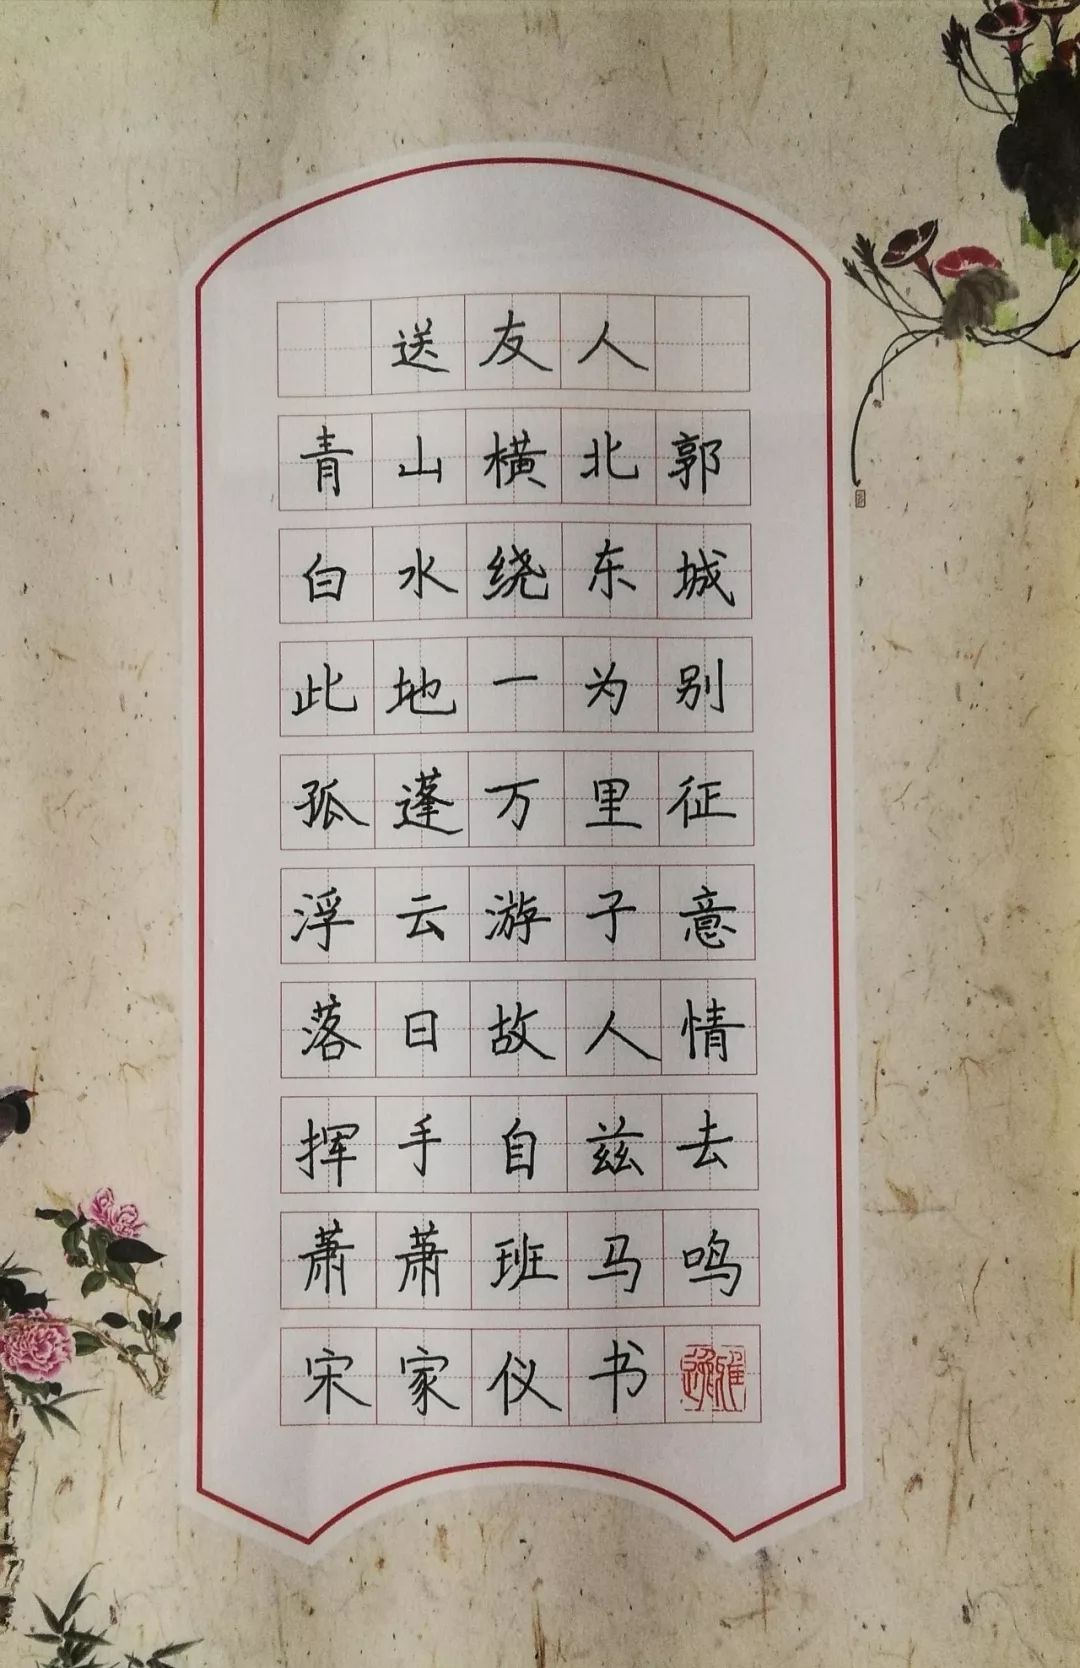 送友人
青山横北郭
白水绕东城
此地一为别
孤蓬万里征
浮云游子意
落日故人情
挥手自兹去
萧萧班马鸣
宋家仪书